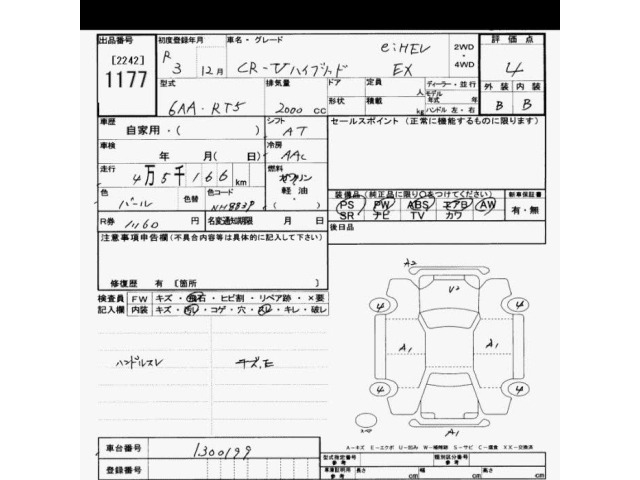 出品番号 初度登録年月 車名・グレード 評価点
[2242] R 3 12月 CR-Vハイブリッド e:HEV EX 2WD・4WD 4
1177
型式 排気量 ドア 定員 人 ディーラー・並行 外装 内装
6AA・RT5 2000 cc 形状 積載 kg モデル年式 年式 ハンドル 左・右 B B
車歴 シフト セールスポイント (正常に機能するものに限ります)
自家用・( ) AT
車検 冷房
年 月( 日) AAC
走行 燃料
4万5千166 km ガソリン
軽油・
色 色替 色コード 装備品(純正品に限り○をつけてください) 新車保証書
パール NH883P PS PW ABS エアB AW 有・無
SR ナビ TV カワ
R券 11160 名変通知期限 月 日 後日品
注意事項申告欄(不具合内容等は具体的に記入して下さい)
修復歴 有 [箇所 ]
検査員 FW キズ・飛石・ヒビ割・リペア跡・×要
記入欄 内装 キズ・汚レ・コゲ・穴・スレ・キレ・破レ
A2
V2
4 4
ハンドルスレ A1 A1
4 4
スペア
A1
A-キズ E-エクボ U-凹み W-補修跡 S-サビ C-腐食 XX-交換済
車台番号 1300199 型式指定番号 参考 類別区分番号 参考
登録番号 車庫証明用 参考 長さ cm 幅 cm 高さ cm